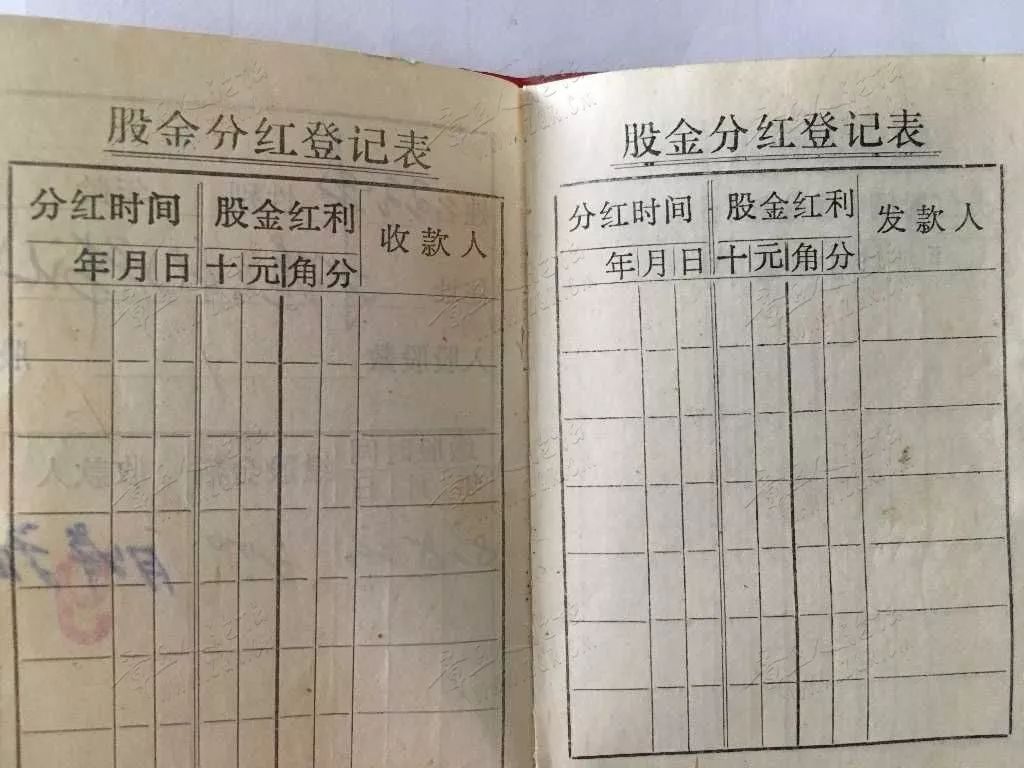 股金分红登记表
分红时间 股金红利 收款人
年 月 日 十 元 角 分
股金分红登记表
分红时间 股金红利 发款人
年 月 日 十 元 角 分